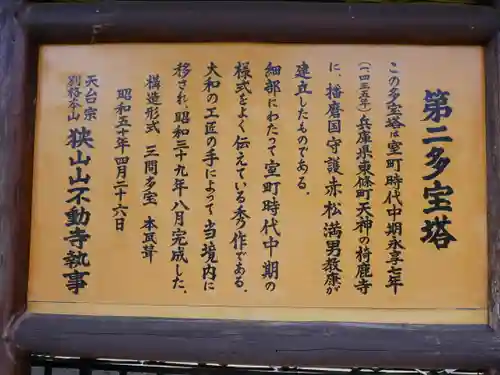 第二多宝塔
この多宝塔は室町時代中期永享七年
(一四三五年)兵庫県東條町天神の椅鹿寺
に、播磨国守護赤松満男教康が
建立したものである。
細部にわたって室町時代中期の
様式をよく伝えている秀作である。
大和の工匠の手によって当境内に
移され、昭和三十九年八月完成した。
構造形式 三間多宝 本瓦葺
昭和五十年四月二十六日
天台宗
別格本山
狭山山不動寺執事